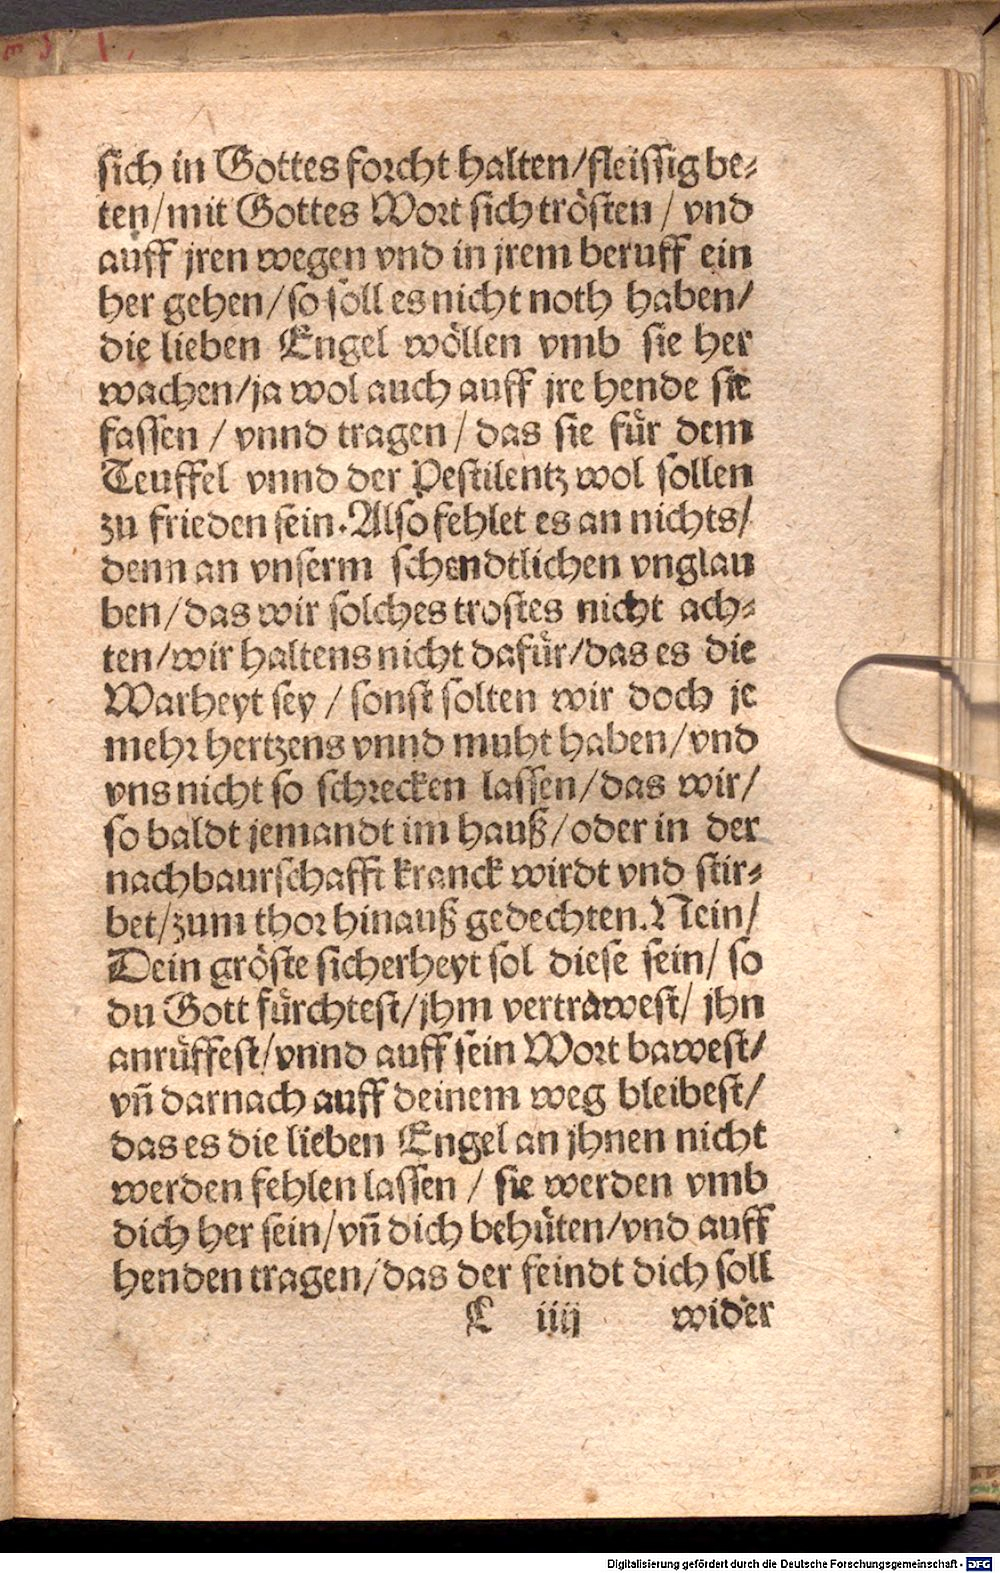 sich in Gottes forcht halten/fleissig be-
ten/mit Gottes Wort sich trösten / vnd
auff jren wegen vnd in jrem beruff ein
her gehen/so soll es nicht noth haben/
die lieben Engel wöllen vmb sie her
wachen/ja wol auch auff jre hende sie
fassen / vnnd tragen / das sie für dem
Teuffel vnnd der Pestilentz wol sollen
zu frieden sein. Also fehlet es an nichts/
denn an vnserm schendtlichen vnglau
ben/das wir solches trostes nicht ach-
ten/wir haltens nicht dafür/das es die
Warheyt sey / sonst solten wir doch je
mehr hertzens vnnd muht haben/vnd
vns nicht so schrecken lassen/das wir/
so baldt jemandt im hauß/oder in der
nachbaurschafft kranck wirdt vnd stir-
bet/zum thor hinauß gedechten. Nein/
Dein gröste sicherheyt sol diese sein/ so
du Gott fürchtest/jhm vertrawest/ jhn
anrüffest/vnnd auff sein Wort bawest/
vñ darnach auff deinem weg bleibest/
das es die lieben Engel an jhnen nicht
werden fehlen lassen / sie werden vmb
dich her sein/vñ dich behüten/vnd auff
henden tragen/das der feindt dich soll
C iiij wider
Digitalisierung gefördert durch die Deutsche Forschungsgemeinschaft - DFG